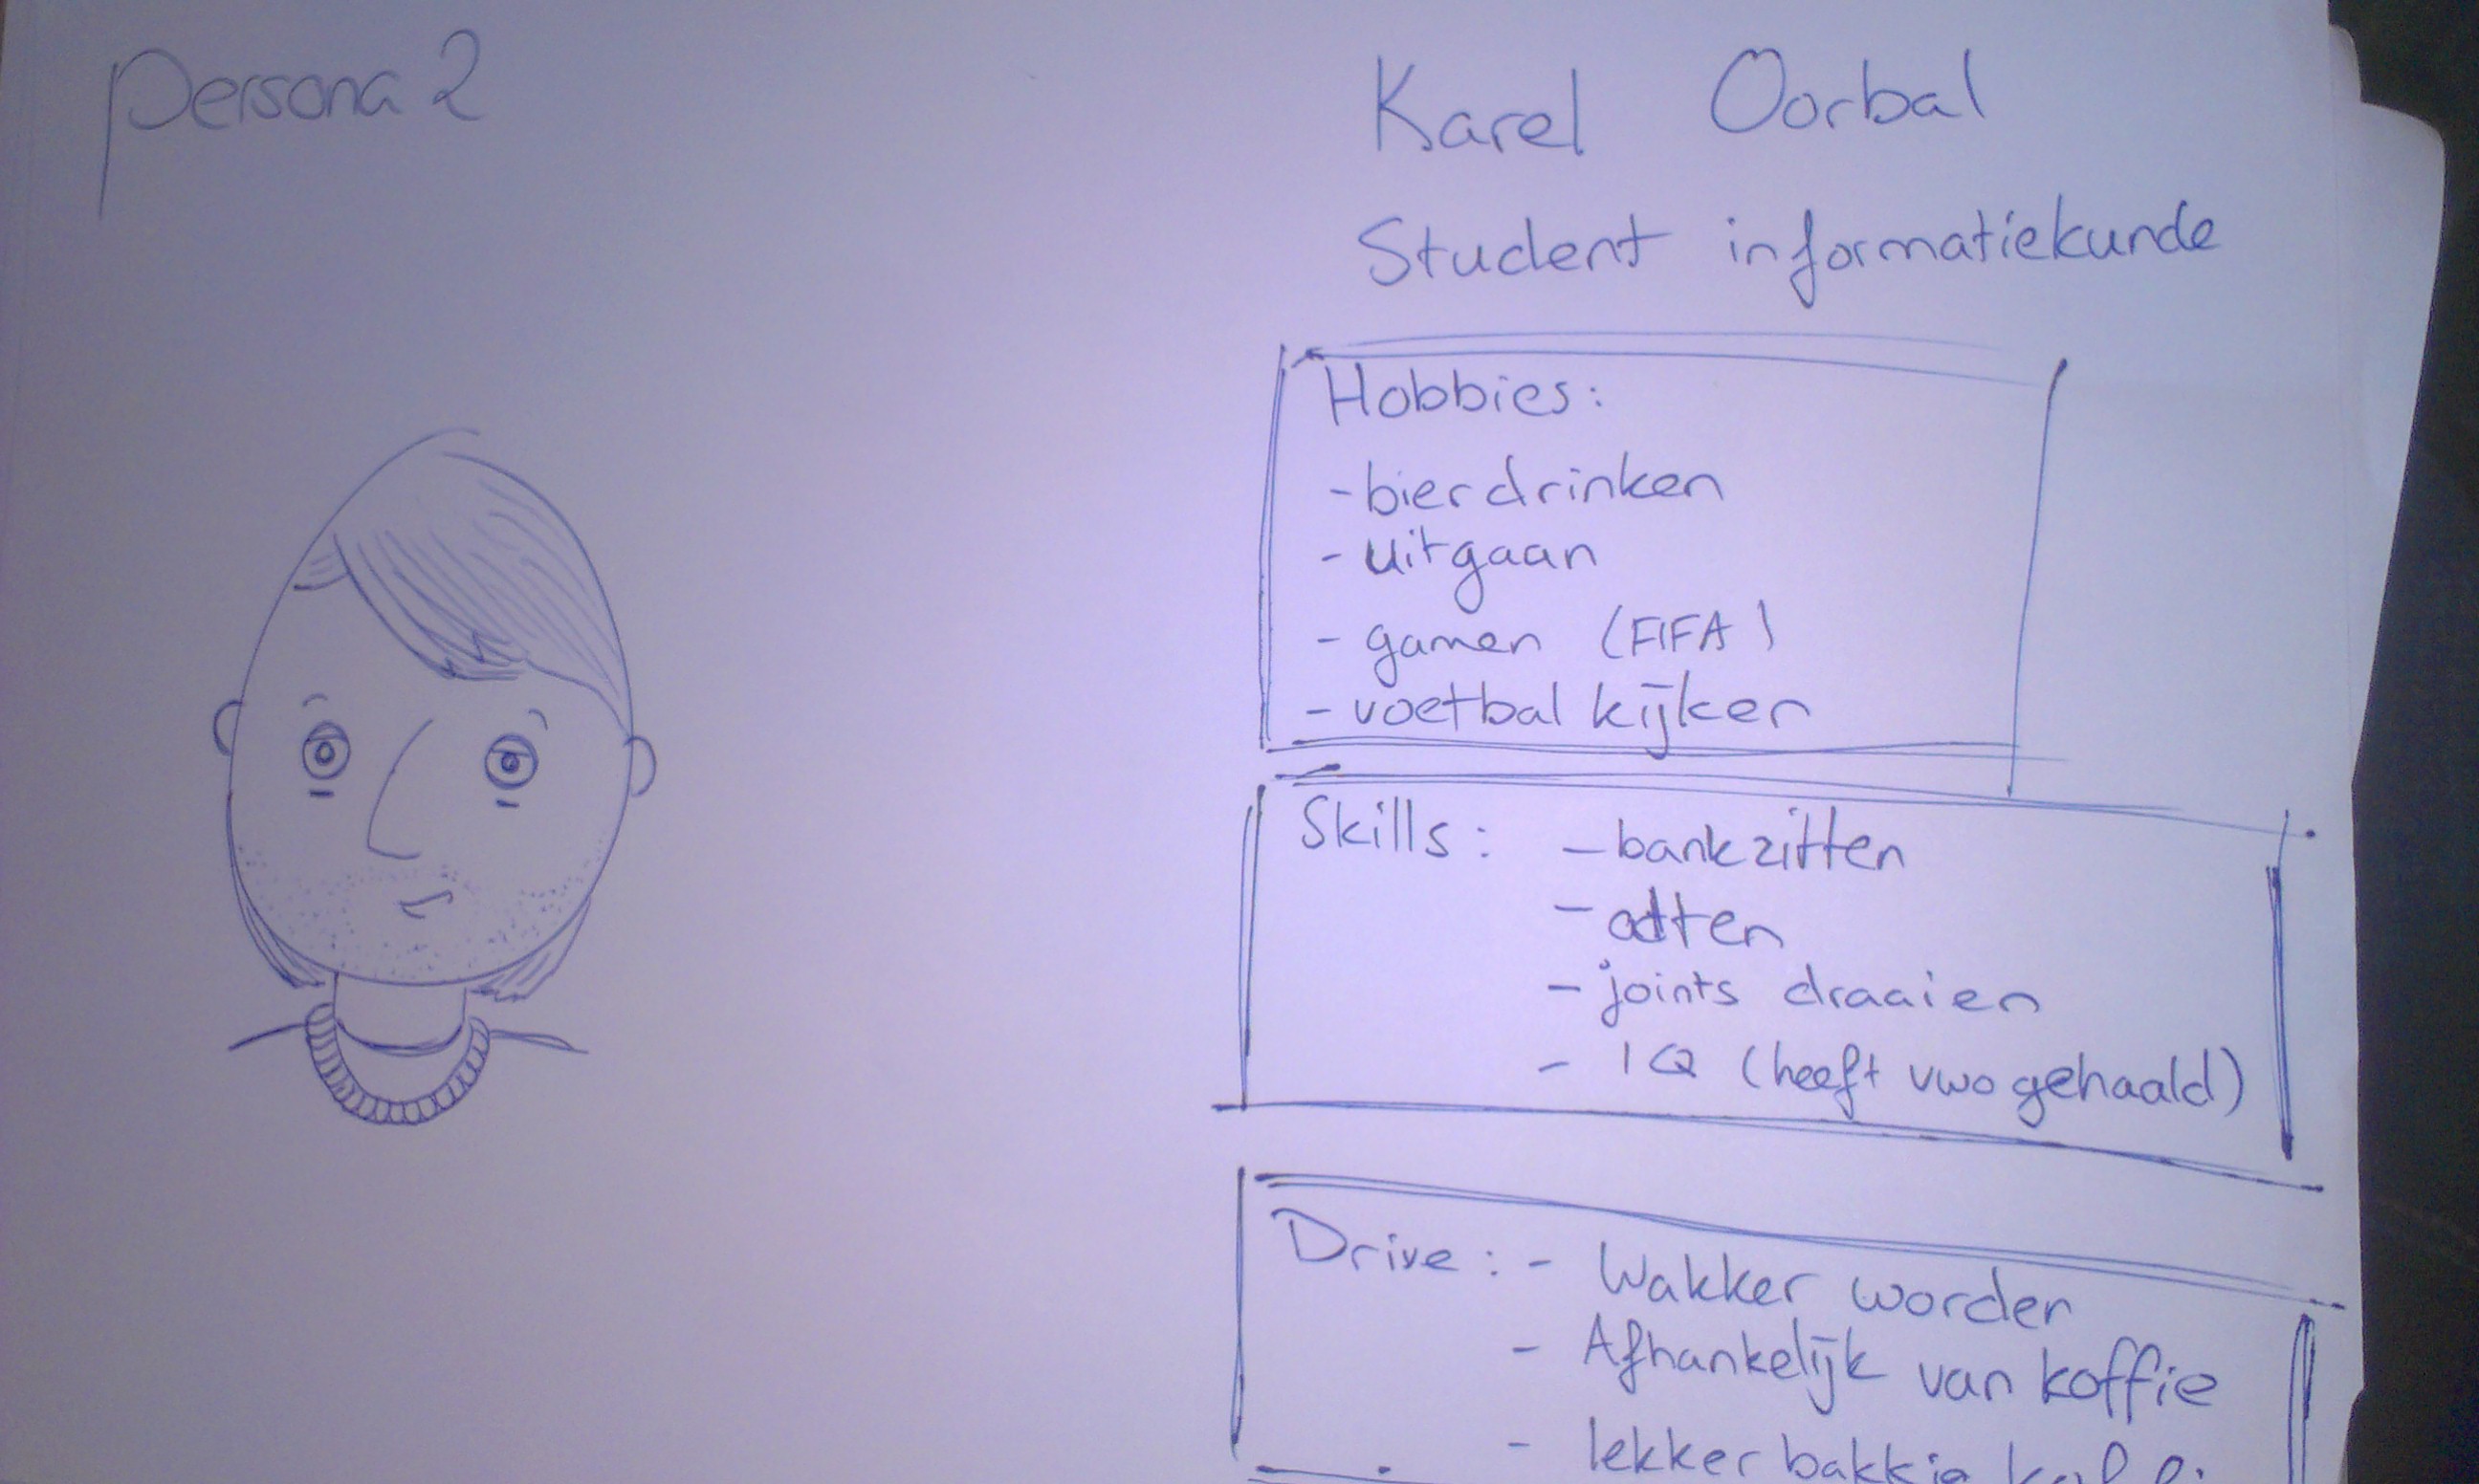 Persona 2
Karel Oorbal
Student informatiekunde
Hobbies:
- bier drinken
- uitgaan
- gamen (FIFA)
- voetbal kijken
Skills: - bankzitten
- adten
- joints draaien
- IQ (heeft vwo gehaald)
Drive: - Wakker worden
- Afhankelijk van koffie
- lekker bakkie koffie